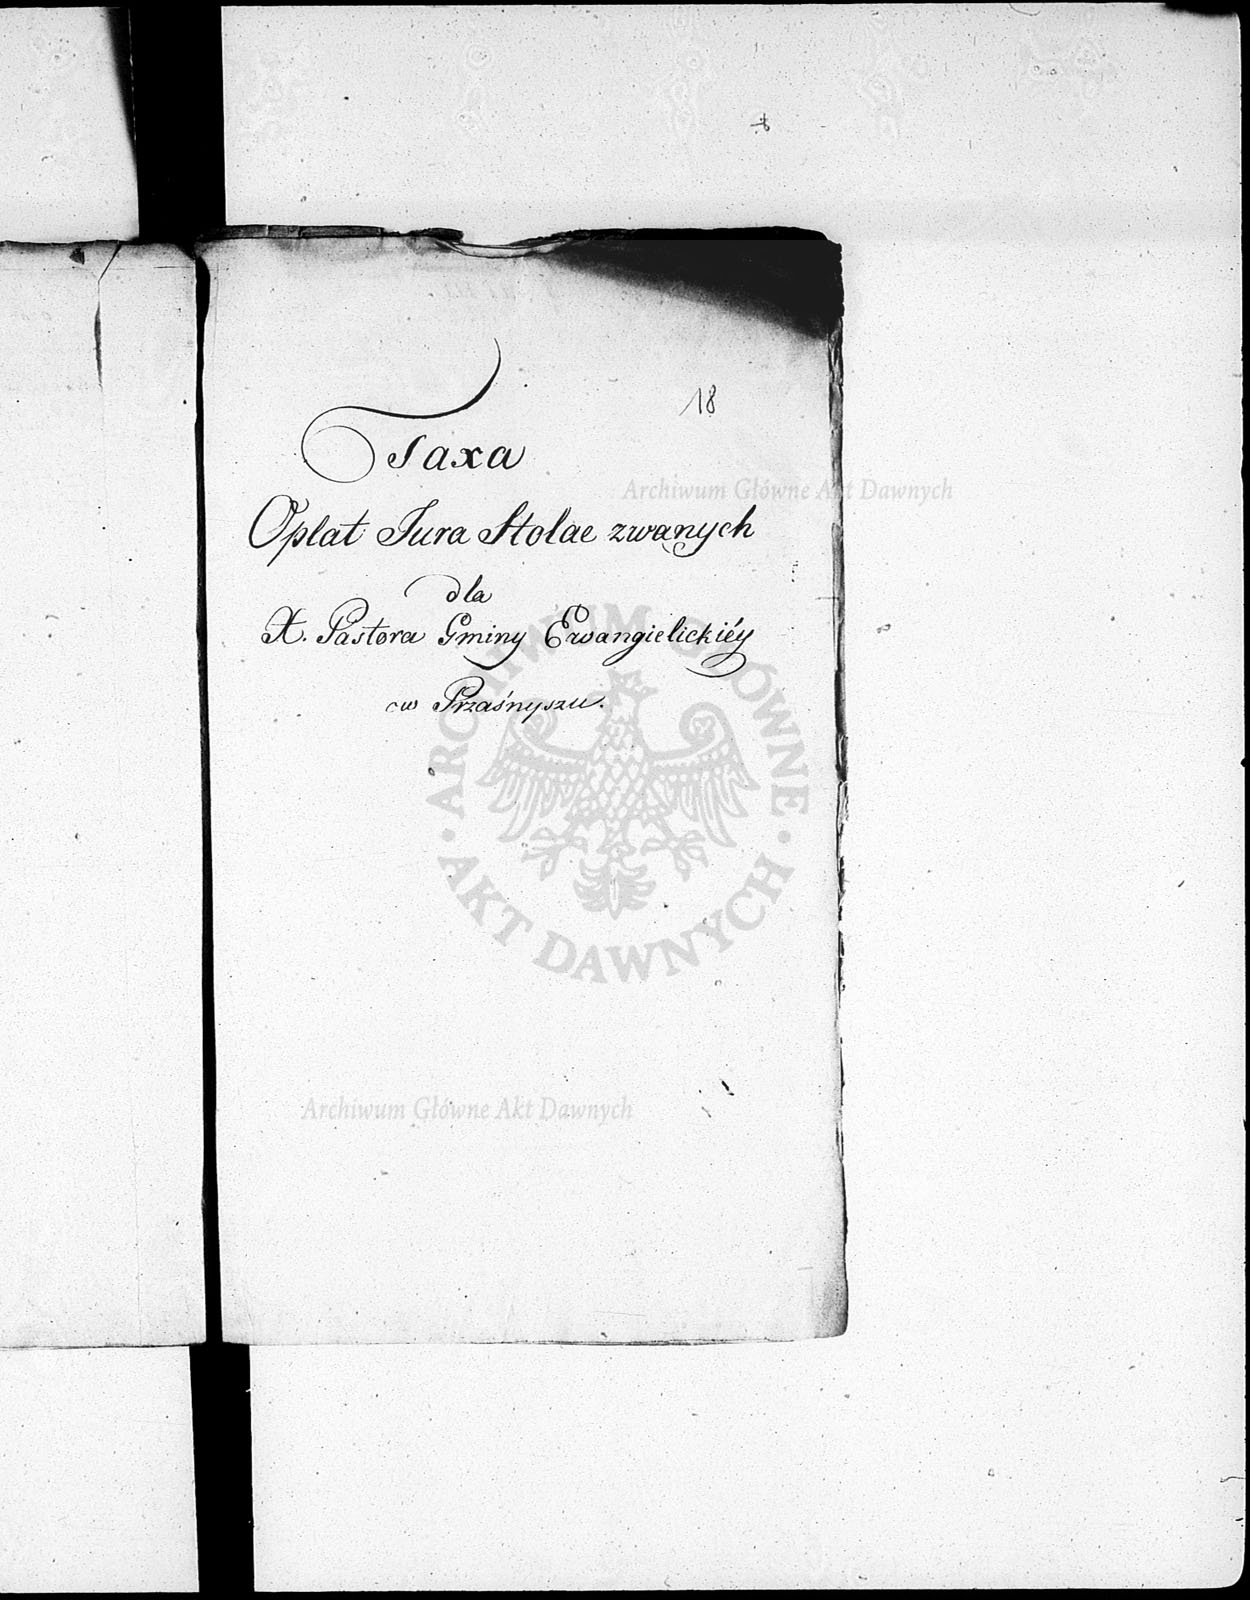 18
Taxa
Archiwum Główne Akt Dawnych
Opłat Jura Stolae zwanych
dla
X. Pastora Gminy Ewangielickiéy
w Przaśnyszu.
ARCHIWUM GŁÓWNE
AKT DAWNYCH
Archiwum Główne Akt Dawnych